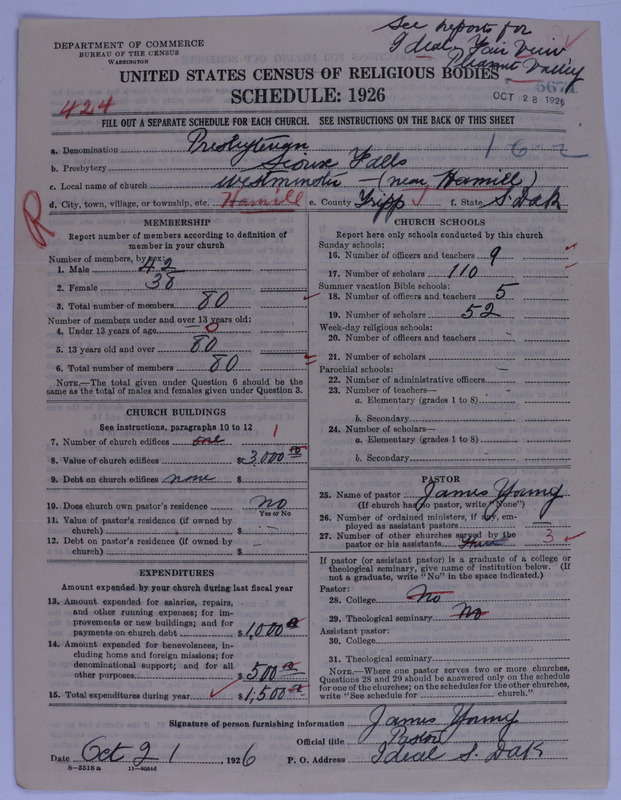 See reports for
Ideal, Fair View
Pleasant Valley
DEPARTMENT OF COMMERCE
BUREAU OF THE CENSUS
WASHINGTON
UNITED STATES CENSUS OF RELIGIOUS BODIES
SCHEDULE: 1926
5671
OCT 28 1926
424
FILL OUT A SEPARATE SCHEDULE FOR EACH CHURCH. SEE INSTRUCTIONS ON THE BACK OF THIS SHEET
a. Denomination Presbyterian
1 6 - 2
b. Presbytery Sioux Falls
c. Local name of church Westminster - (near Hamill)
d. City, town, village, or township, etc. Hamill e. County Tripp f. State S. Dak
R
MEMBERSHIP
Report number of members according to definition of
member in your church
Number of members, by sex:
1. Male 42
2. Female 38
3. Total number of members 80
Number of members under and over 13 years old:
4. Under 13 years of age 0
5. 13 years old and over 80
6. Total number of members 80
NOTE.—The total given under Question 6 should be the
same as the total of males and females given under Question 3.
CHURCH BUILDINGS
See instructions, paragraphs 10 to 12
7. Number of church edifices one 1
8. Value of church edifices $3,000 00
9. Debt on church edifices none $
10. Does church own pastor's residence No
Yes or No
11. Value of pastor's residence (if owned by
church) $ -
12. Debt on pastor's residence (if owned by
church) $ -
EXPENDITURES
Amount expended by your church during last fiscal year
13. Amount expended for salaries, repairs,
and other running expenses; for im-
provements or new buildings; and for
payments on church debt $1,000 00
14. Amount expended for benevolences, in-
cluding home and foreign missions; for
denominational support; and for all
other purposes $500 00
15. Total expenditures during year $1,500 00
CHURCH SCHOOLS
Report here only schools conducted by this church
Sunday schools:
16. Number of officers and teachers 9
17. Number of scholars 110
Summer vacation Bible schools:
18. Number of officers and teachers 5
19. Number of scholars 52
Week-day religious schools:
20. Number of officers and teachers
21. Number of scholars
Parochial schools:
22. Number of administrative officers
23. Number of teachers—
a. Elementary (grades 1 to 8)
b. Secondary
24. Number of scholars—
a. Elementary (grades 1 to 8)
b. Secondary
PASTOR
25. Name of pastor James Young
(If church has no pastor, write "None")
26. Number of ordained ministers, if any, em-
ployed as assistant pastors —
27. Number of other churches served by the
pastor or his assistants 3
If pastor (or assistant pastor) is a graduate of a college or
theological seminary, give name of institution below. (If
not a graduate, write "No" in the space indicated.)
Pastor:
28. College No
29. Theological seminary No
Assistant pastor:
30. College
31. Theological seminary
NOTE.—Where one pastor serves two or more churches,
Questions 28 and 29 should be answered only on the schedule
for one of the churches; on the schedules for the other churches,
write "See schedule for church."
Signature of person furnishing information James Young
Official title Pastor
Date Oct 21, 1926 P. O. Address Ideal S. Dak
8-5518a 11-9084d